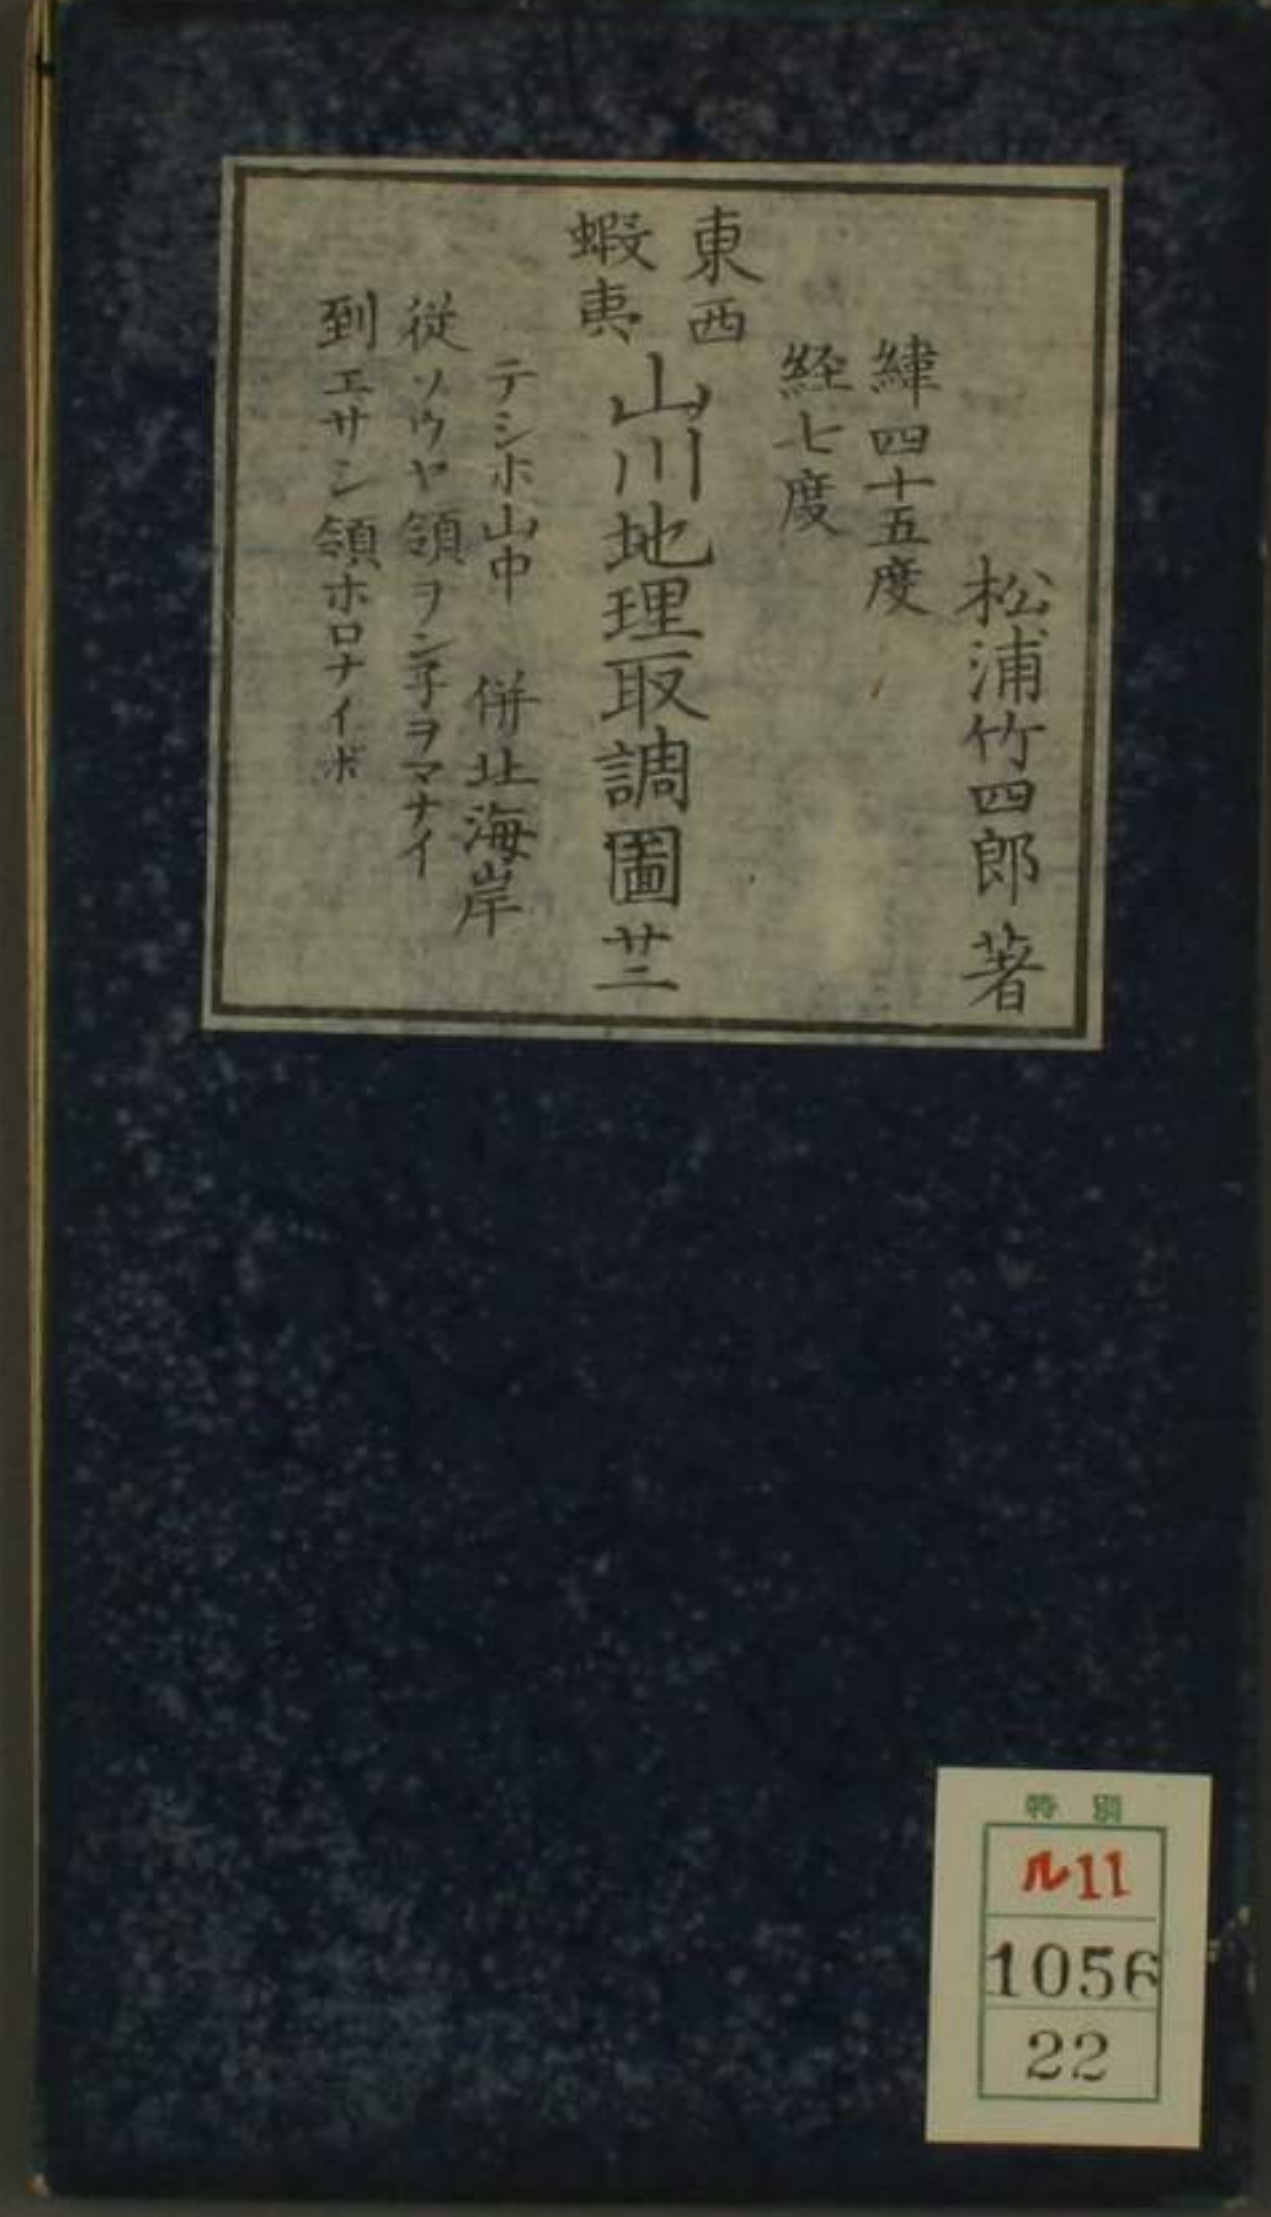 松浦竹四郎著
緯四十五度
経七度
東西
蝦夷
山川地理取調圖 廿二
テシホ山中 併北海岸
従ソウヤ領ヲン子ヲマナイ
到エサシ領ホロナイボ
特別
ル11
1056
22